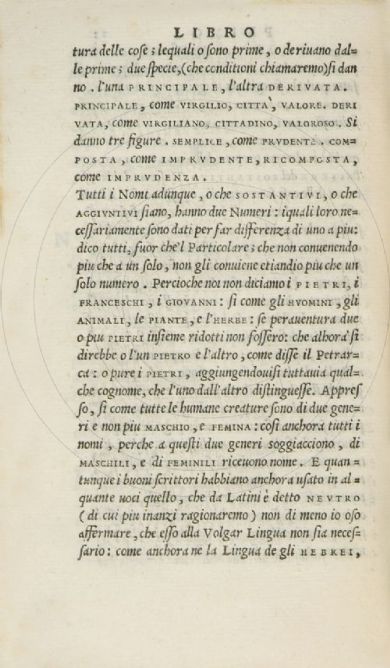 LIBRO
tura delle cose; lequali o sono prime, o deriuano dal-
le prime; due specie, (che conditioni chiamaremo) si dan
no. l'una PRINCIPALE, l'altra DERIVATA.
PRINCIPALE, come VIRGILIO, CITTA', VALORE. DERI
VATA, come VIRGILIANO, CITTADINO, VALOROSO. Si
danno tre figure. SEMPLICE, come PRVDENTE. COM-
POSTA, come IMPRVDENTE, RICOMPOSTA,
come IMPRVDENZA.
Tutti i Nomi adunque, o che SOSTANTIVI, o che
AGGIVNTIVI siano, hanno due Numeri: iquali loro ne-
cessariamente sono dati per far differenza di uno a piu:
dico tutti, fuor che'l Particolare; che non conuenendo
piu che a un solo, non gli conuiene etiandio piu che un
solo numero. Percioche noi non diciamo i PIETRI, i
FRANCESCHI, i GIOVANNI: si come gli HVOMINI, gli
ANIMALI, le PIANTE, e l'HERBE: se perauentura due
o piu PIETRI insieme ridotti non fossero: che alhora si
direbbe o l'un PIETRO e l'altro, come disse il Petrar-
ca: o pure i PIETRI, aggiungendouisi tuttauia qual-
che cognome, che l'uno dall'altro distinguesse. Appres
so, si come tutte le humane creature sono di due gene-
ri e non piu MASCHIO, e FEMINA: cosi anchora tutti i
nomi, perche a questi due generi soggiacciono, di
MASCHILI, e di FEMINILI riceuono nome. E quan-
tunque i buoni scrittori habbiano anchora usato in al-
quante uoci quello, che da Latini è detto NEVTRO
(di cui piu inanzi ragionaremo) non di meno io oso
affermare, che esso alla Volgar Lingua non sia neces-
sario: come anchora ne la Lingua de gli HEBREI,